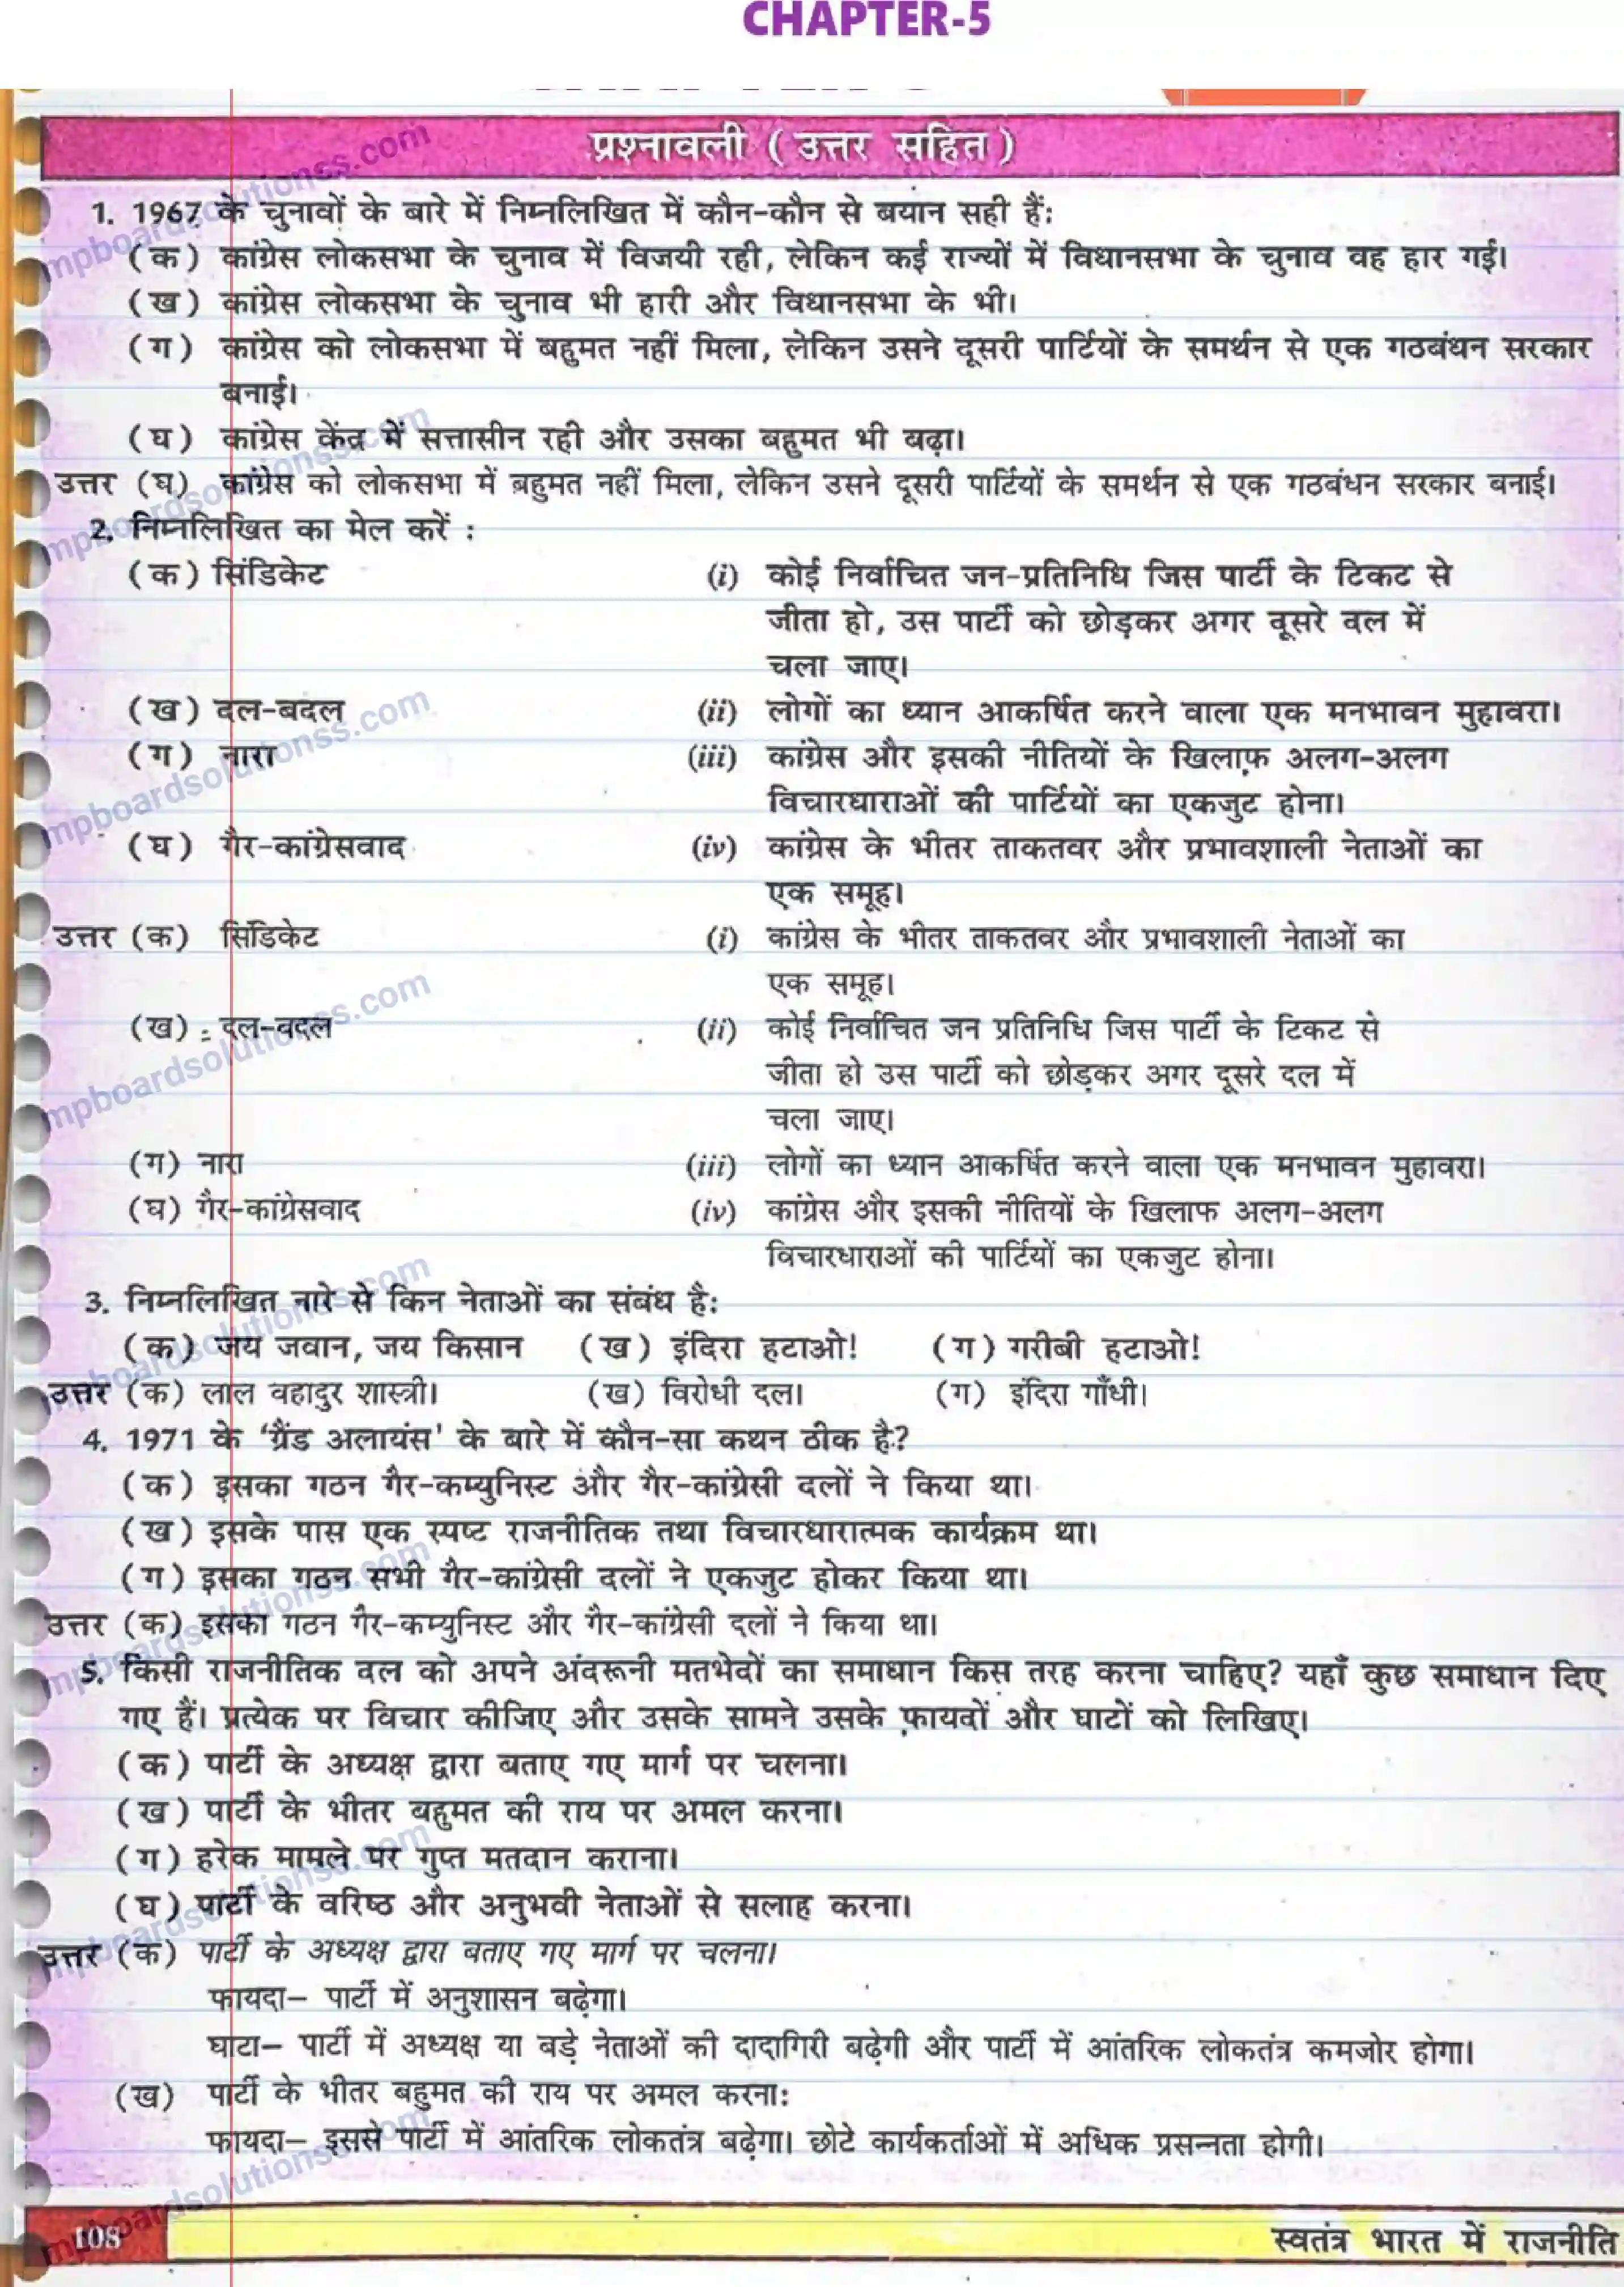 CHAPTER-5
प्रश्नावली ( उत्तर सहित )
1. 1967 के चुनावों के बारे में निम्नलिखित में कौन-कौन से बयान सही हैं:
(क) कांग्रेस लोकसभा के चुनाव में विजयी रही, लेकिन कई राज्यों में विधानसभा के चुनाव वह हार गई।
(ख) कांग्रेस लोकसभा के चुनाव भी हारी और विधानसभा के भी।
(ग) कांग्रेस को लोकसभा में बहुमत नहीं मिला, लेकिन उसने दूसरी पार्टियों के समर्थन से एक गठबंधन सरकार
बनाई।
(घ) कांग्रेस केंद्र में सत्तासीन रही और उसका बहुमत भी बढ़ा।
उत्तर (घ) कांग्रेस को लोकसभा में बहुमत नहीं मिला, लेकिन उसने दूसरी पार्टियों के समर्थन से एक गठबंधन सरकार बनाई।
2. निम्नलिखित का मेल करें :
(क) सिंडिकेट (i) कोई निर्वाचित जन-प्रतिनिधि जिस पार्टी के टिकट से
जीता हो, उस पार्टी को छोड़कर अगर दूसरे दल में
चला जाए।
(ख) दल-बदल (ii) लोगों का ध्यान आकर्षित करने वाला एक मनभावन मुहावरा।
(ग) नारा (iii) कांग्रेस और इसकी नीतियों के खिलाफ़ अलग-अलग
विचारधाराओं की पार्टियों का एकजुट होना।
(घ) गैर-कांग्रेसवाद (iv) कांग्रेस के भीतर ताकतवर और प्रभावशाली नेताओं का
एक समूह।
उत्तर (क) सिंडिकेट (i) कांग्रेस के भीतर ताकतवर और प्रभावशाली नेताओं का
एक समूह।
(ख) दल-बदल (ii) कोई निर्वाचित जन प्रतिनिधि जिस पार्टी के टिकट से
जीता हो उस पार्टी को छोड़कर अगर दूसरे दल में
चला जाए।
(ग) नारा (iii) लोगों का ध्यान आकर्षित करने वाला एक मनभावन मुहावरा।
(घ) गैर-कांग्रेसवाद (iv) कांग्रेस और इसकी नीतियों के खिलाफ अलग-अलग
विचारधाराओं की पार्टियों का एकजुट होना।
3. निम्नलिखित नारे से किन नेताओं का संबंध है:
(क) जय जवान, जय किसान (ख) इंदिरा हटाओ! (ग) गरीबी हटाओ!
उत्तर (क) लाल बहादुर शास्त्री। (ख) विरोधी दल। (ग) इंदिरा गाँधी।
4. 1971 के 'ग्रैंड अलायंस' के बारे में कौन-सा कथन ठीक है?
(क) इसका गठन गैर-कम्युनिस्ट और गैर-कांग्रेसी दलों ने किया था।
(ख) इसके पास एक स्पष्ट राजनीतिक तथा विचारधारात्मक कार्यक्रम था।
(ग) इसका गठन सभी गैर-कांग्रेसी दलों ने एकजुट होकर किया था।
उत्तर (क) इसका गठन गैर-कम्युनिस्ट और गैर-कांग्रेसी दलों ने किया था।
5. किसी राजनीतिक दल को अपने अंदरूनी मतभेदों का समाधान किस तरह करना चाहिए? यहाँ कुछ समाधान दिए
गए हैं। प्रत्येक पर विचार कीजिए और उसके सामने उसके फ़ायदों और घाटों को लिखिए।
(क) पार्टी के अध्यक्ष द्वारा बताए गए मार्ग पर चलना।
(ख) पार्टी के भीतर बहुमत की राय पर अमल करना।
(ग) हरेक मामले पर गुप्त मतदान कराना।
(घ) पार्टी के वरिष्ठ और अनुभवी नेताओं से सलाह करना।
उत्तर (क) पार्टी के अध्यक्ष द्वारा बताए गए मार्ग पर चलना।
फायदा– पार्टी में अनुशासन बढ़ेगा।
घाटा– पार्टी में अध्यक्ष या बड़े नेताओं की दादागिरी बढ़ेगी और पार्टी में आंतरिक लोकतंत्र कमजोर होगा।
(ख) पार्टी के भीतर बहुमत की राय पर अमल करना:
फायदा– इससे पार्टी में आंतरिक लोकतंत्र बढ़ेगा। छोटे कार्यकर्ताओं में अधिक प्रसन्नता होगी।
108 स्वतंत्र भारत में राजनीति
mpboardsolutionss.com
mpboardsolutionss.com
mpboardsolutionss.com
mpboardsolutionss.com
mpboardsolutionss.com
mpboardsolutionss.com
mpboardsolutionss.com
mpboardsolutionss.com